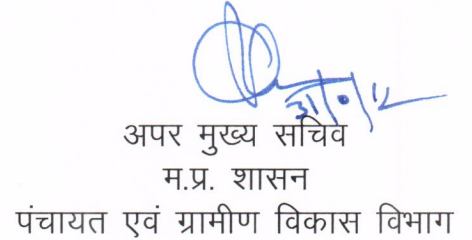 अपर मुख्य सचिव
म.प्र. शासन
पंचायत एवं ग्रामीण विकास विभाग